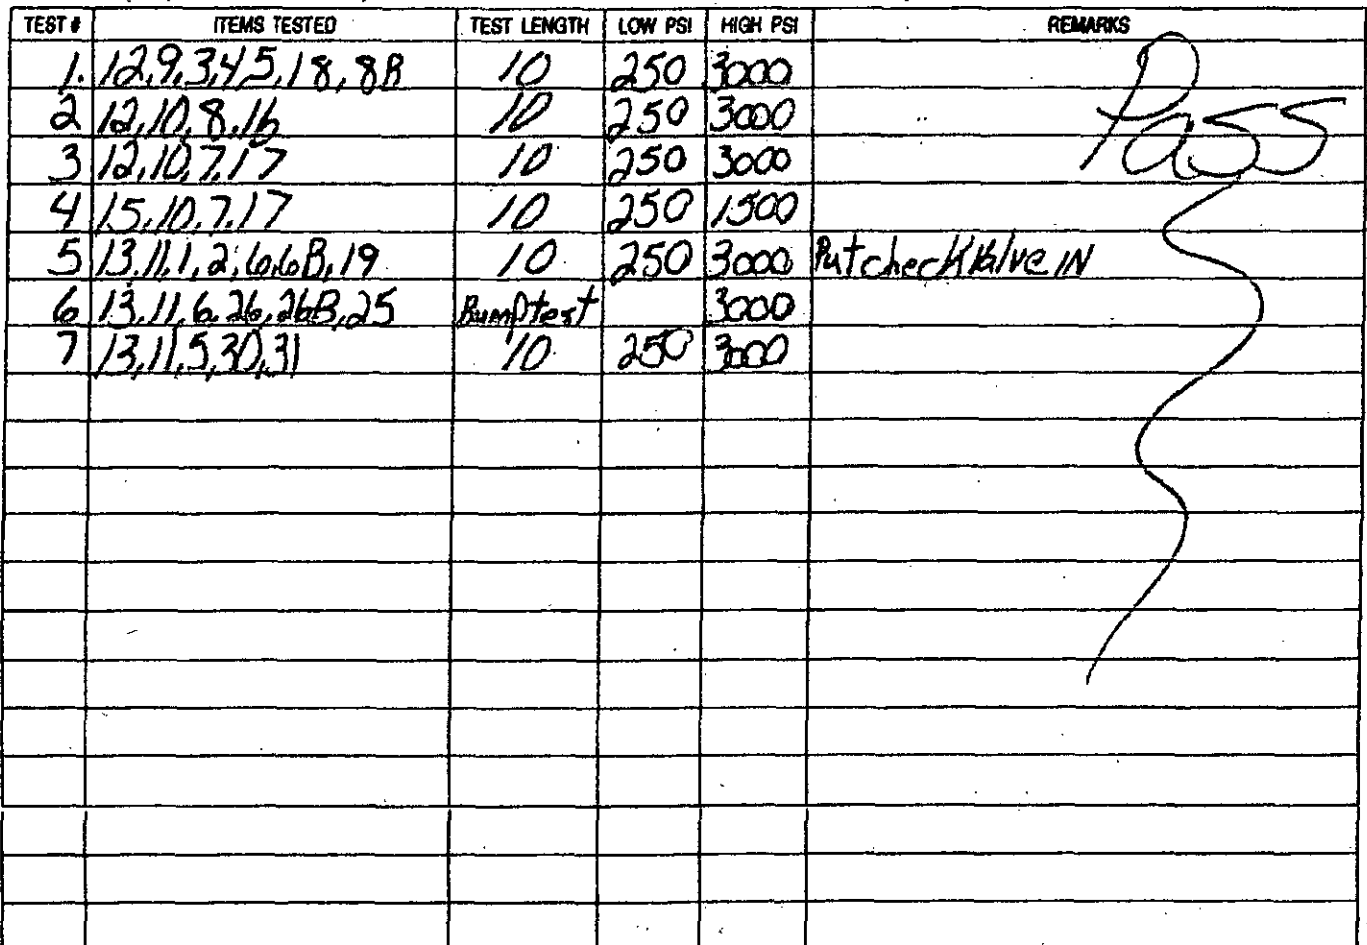 TEST # ITEMS TESTED TEST LENGTH LOW PSI HIGH PSI REMARKS
1. 12,9,3,4,5,18,8B 10 250 3000
2 12,10,8,16 10 250 3000 Pass
3 12,10,7,17 10 250 3000
4 15,10,7,17 10 250 1500
5 13,11,1,2,6,6B,19 10 250 3000 Put check Valve IN
6 13,11,6,26,26B,25 Bumptest 3000
7 13,11,5,30,31 10 250 3000